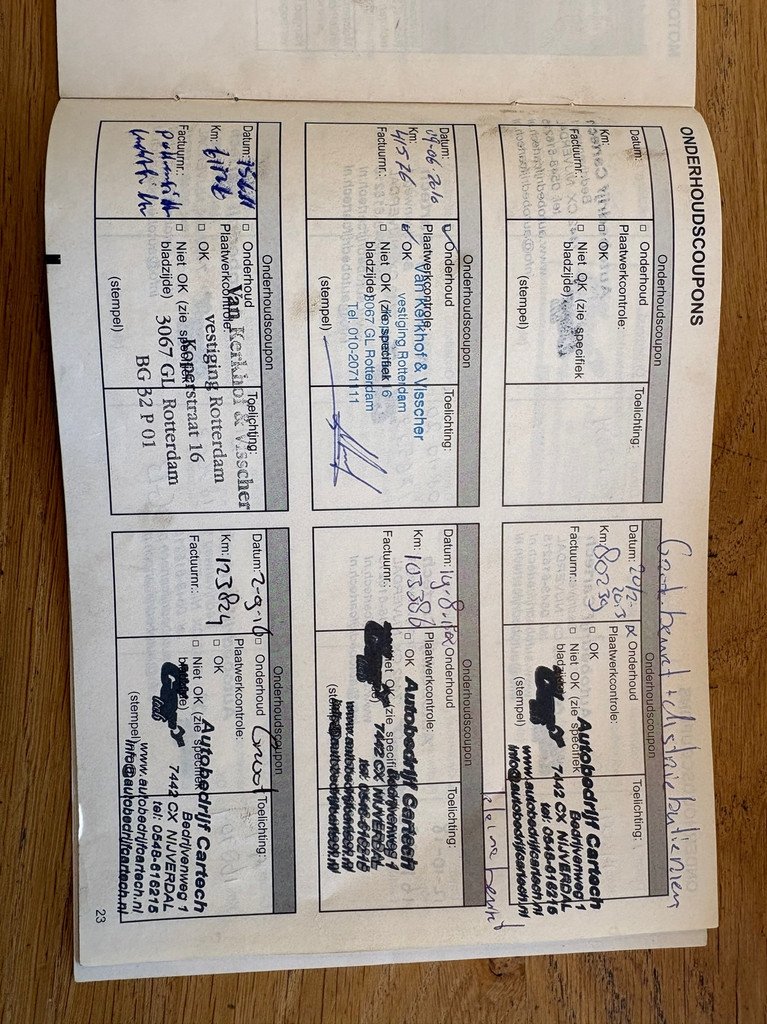 ONDERHOUDSCOUPONS
Onderhoudscoupon
Datum:
□ Onderhoud
Toelichting:
Plaatwerkcontrole:
Km:
□ OK
Factuurnr.:
□ Niet OK (zie specifiek
bladzijde)
(stempel)
Onderhoudscoupon
Datum:
14-06 2010
Onderhoud
Toelichting:
Plaatwerkcontrole:
Km:
41526
OK
Factuurnr.:
□ Niet OK (zie specifiek
bladzijde)
(stempel)
Van Kerkhof & Visscher
vestiging Rotterdam
16
3067 GL Rotterdam
Tel. 010-2071111
Onderhoudscoupon
Datum:
□ Onderhoud
Toelichting:
Plaatwerkcontrole:
Km:
□ OK
Factuurnr.:
□ Niet OK (zie specifiek
bladzijde)
(stempel)
Van Kerkhof & Visscher
vestiging Rotterdam
Koperstraat 16
3067 GL Rotterdam
BG 32 P 01
Onderhoudscoupon
Datum: 20/12-2013
Onderhoud
Toelichting:
Plaatwerkcontrole:
Km: 80239
□ OK
Factuurnr.:
□ Niet OK (zie specifiek
bladzijde)
(stempel)
Autobedrijf Cartech
Bedrijvenweg 1
7442 CX NIJVERDAL
tel: 0548-616215
www.autobedrijfcartech.nl
info@autobedrijfcartech.nl
kleine beurt
Onderhoudscoupon
Datum: 19-8-
Onderhoud
Toelichting:
Plaatwerkcontrole:
Km: 103386
□ OK
Factuurnr.:
Niet OK (zie specifiek
(stempel)
Autobedrijf Cartech
Bedrijvenweg 1
7442 CX NIJVERDAL
tel: 0548-616215
www.autobedrijfcartech.nl
info@autobedrijfcartech.nl
Onderhoudscoupon
Datum: 2-9-16
□ Onderhoud
Groot
Toelichting:
Plaatwerkcontrole:
Km: 123824
□ OK
Factuurnr.:
□ Niet OK (zie specifiek
bladzijde)
(stempel)
Autobedrijf Cartech
Bedrijvenweg 1
7442 CX NIJVERDAL
tel: 0548-616215
www.autobedrijfcartech.nl
info@autobedrijfcartech.nl
23